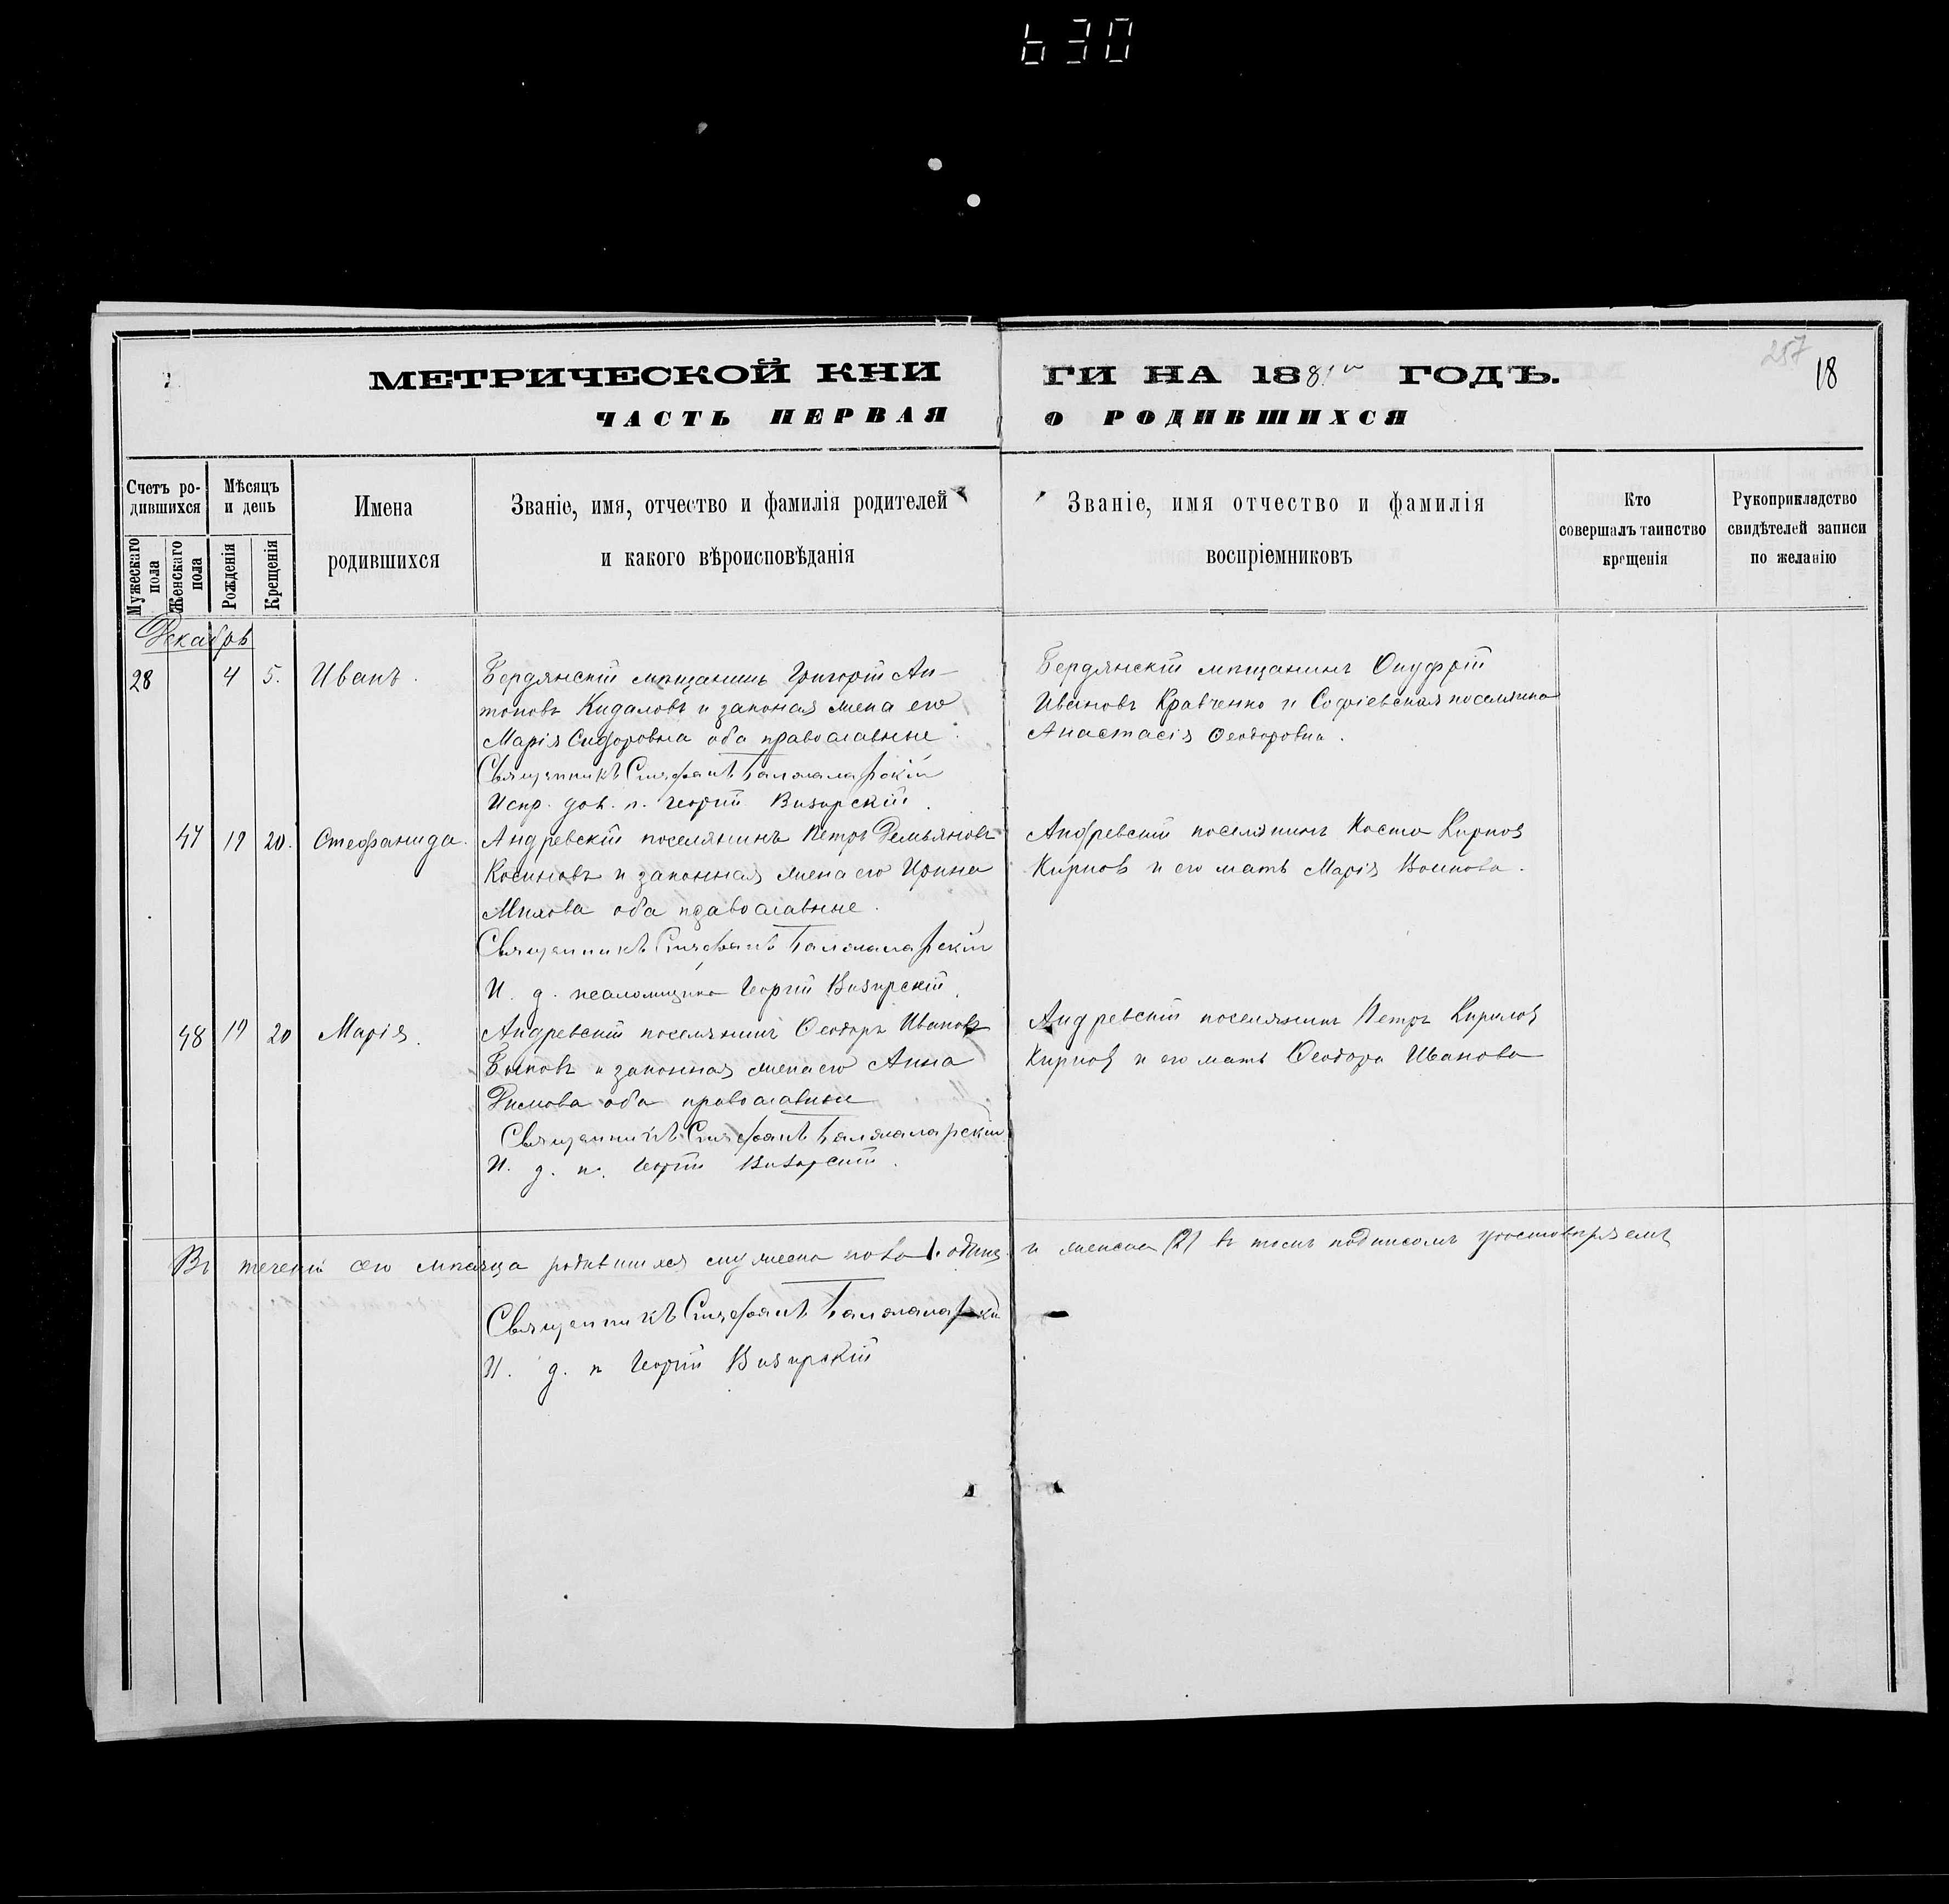 630
МЕТРИЧЕСКОЙ КНИ ГИ НА 1881й ГОДЪ.
257
18
ЧАСТЬ ПЕРВАЯ О РОДИВШИХСЯ
Счетъ ро-
дившихся
Мужескаго пола
Женскаго пола
Мѣсяцъ
и день
Рожденія
Крещенія
Имена
родившихся
Званіе, имя, отчество и фамилія родителей
и какого вѣроисповѣданія
Званіе, имя отчество и фамилія
воспріемниковъ
Кто
совершалъ таинство
крещенія
Рукоприкладство
свидѣтелей записи
по желанію
Декабрь
28 4 5. Иванъ.
Бердянскій мѣщанинъ Григорій Ан-
тоновъ Кидаловъ и законая жена его
Марія Сидоровна оба православные
Священникъ Стефанъ
Испр. дов. п. Георгій Визирскій.
Бердянскій мѣщанинъ Онуфрій
Ивановъ Кравченко и Софіевская поселянка
Анастасія Ѳеодоровна.
47 19 20. Стефанида.
Андревскій поселянинъ Петръ Демьяновъ
Косиновъ и законная жена его Ирина
оба православные.
Священникъ Стефанъ
И. д. псаломщика Георгій Визирскій.
Андревскій поселянинъ Коста Кирпов
Кирпов и его мать Марія Воинова.
48 19 20 Марія.
Андревскій поселянинъ Ѳеодоръ Ивановъ
и законная жена его Анна
Димова оба православные
Священникъ Стефанъ
И. д. п. Георгій Визирскій.
Андревскій поселянинъ Петръ Кирилов
Кирпов и его мать Ѳеодора Иванова
Въ теченіи сего мѣсяца родившихся мужеска пола 1. одинъ и женска (2) въ томъ подписомъ удостовѣряемъ
Священникъ Стефанъ
И. д. п Георгій Визирскій